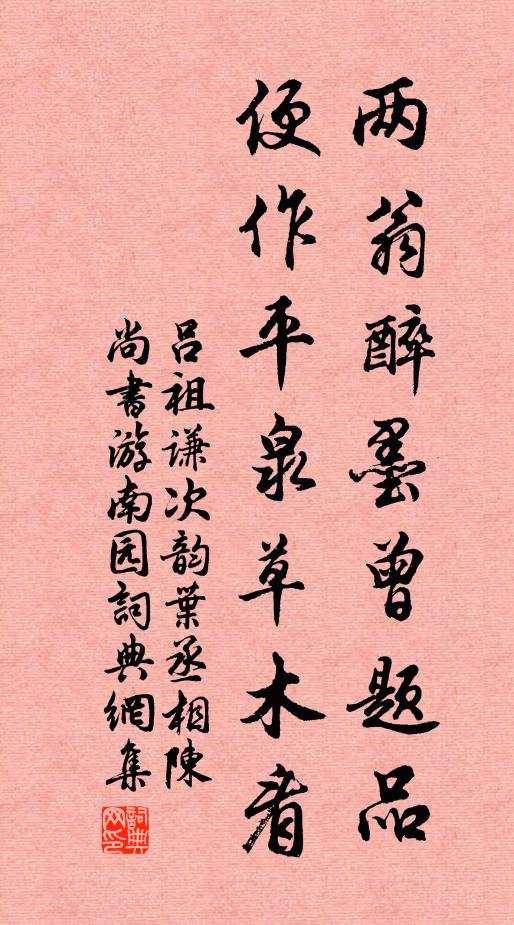 两翁醉墨曾题品
便作平泉草木看
吕祖谦次韵葉丞相陳
尚書游南园詞典網集
詞典
网印